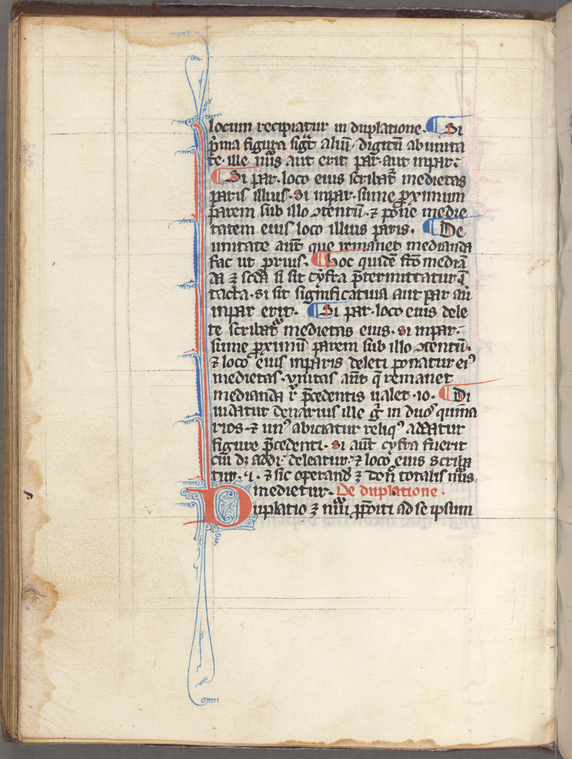 locum recipiatur in duplatione. ¶ Si
pͥma figura sigͭ aliū digitū ab unita
te ille nūs aut erit par aut inpar:
¶ Si par. loco eius scribat᷑ medietas
paris illius. Si inpar. sume ꝓximum
parem sub illo ↄtentū. ⁊ pone medie
tatem eius loco illius paris. ¶ De
unitate aūt que remanet medianda
fac ut prius. ¶ Hoc quidē fc̄o media
si sit cyfra p̄termittatur ī
tacta. Si sit significatiua aut par aū
inpar erit. ¶ Si par. loco eius dele
te scribat᷑ medietas eius. Si inpar.
sume ꝓximū parem sub illo ↄtentū.
⁊ loco eius inparis deleti ponatur eiꝰ
medietas. vnitas aūt q̄ remanet
medianda r̄ p̄cedentis ualet .10. ¶ Di
uidatur denarius ille in duos quina
rios. ⁊ unꝰ abiciatur reliqꝰ addatur
figure p̄cedenti. Si aūt cyfra fuerit
cui addi. deleatur. ⁊ loco eius scriba
tur .i. ⁊ sic operand totalis nūs
medietur. De duplatione.
Duplatio ꝫ nūi ad se ipsum